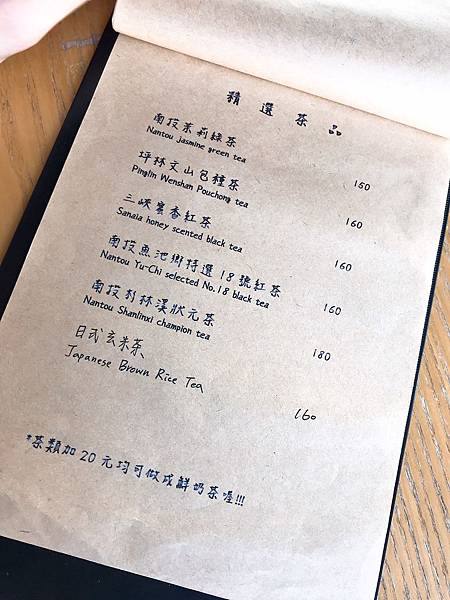 精選茶品
南投茉莉綠茶
Nantou jasmine green tea 150
坪林文山包種茶
Pinglin Wenshan Pouchong tea 160
三峽蜜香紅茶
Sanxia honey scented black tea 160
南投魚池鄉特選18號紅茶
Nantou Yu-Chi selected No.18 black tea 160
南投杉林溪狀元茶
Nantou Shanlinxi champion tea 180
日式玄米茶
Japanese Brown Rice Tea 160
*茶類加20元均可做成鮮奶茶喔!!!